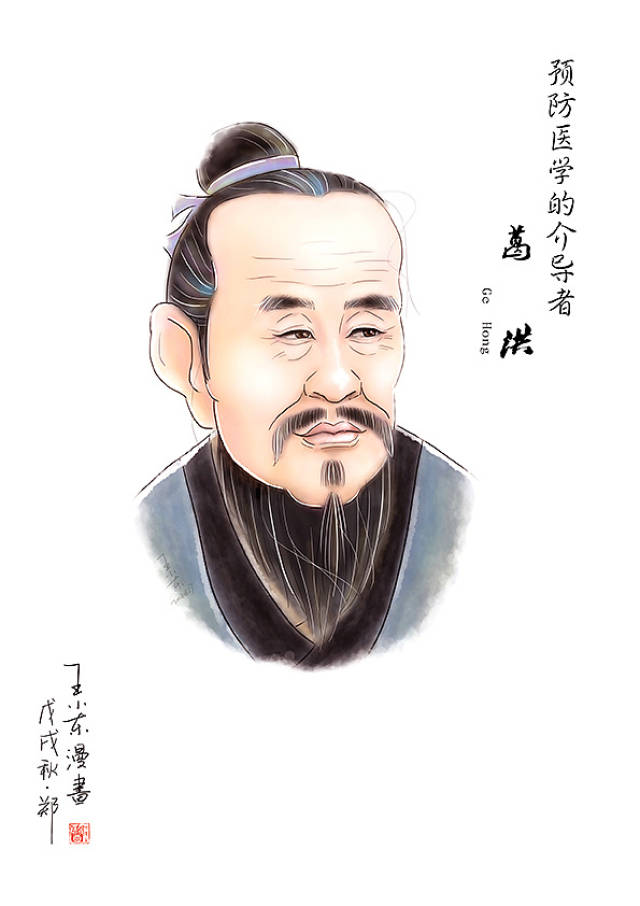 预防医学的介导者
葛洪
Ge Hong
王小东漫畫
戊戌秋·郑